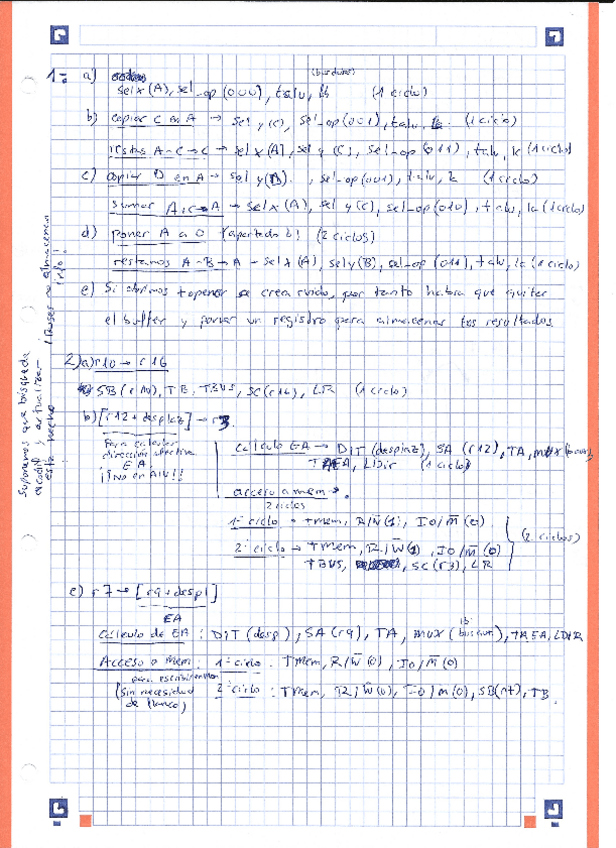 1º a) selx(A), sel-op(000), talu, (1 ciclo)
b) copiar C en A → sel y(C), sel-op(001), talu, (1 ciclo)
restas A-C→C → sel x(A), sel y(C), sel-op(011), talu, lc (1 ciclo)
c) copiar D en A → sel y(D), sel-op(001), talu, (1 ciclo)
sumar A+C→A → selx(A), sel y(C), sel-op(010), talu, la (1 ciclo)
d) poner A a 0 (apartado) (2 ciclos)
restamos A-B→A → selx(A), sely(B), sel-op(011), talu, la (1 ciclo)
e) Si abrimos se crea ruido, por tanto habra que quitar
el buffer y poner un registro para almacenar los resultados.
Suponemos que busqueda
esta hecho
2) a) r10 → r16
SB(r10), TB, TBUS, SC(r16), LR (1 ciclo)
b) [r12+desplaz] → r3
Para calcular
dirección efectiva
EA
¡¡No en ALU!!
calculo EA → DIT(desplaz), SA(r12), TA, mux
TREA, LDir (1 ciclo)
acceso a mem →
2 ciclos
1º ciclo → Tmem, R/W̅(1), IO/m̅(0)
2º ciclo → Tmem, R/W̅(1), IO/m̅(0)
TBUS, SC(r3), LR
(2 ciclos)
c) r7 → [r9+despl]
EA
calculo de EA: DIT(desp), SA(r9), TA, mux, TREA, LDIR
Acceso a mem: 1º ciclo: Tmem, R/W̅(0), Io/m̅(0)
para escribir en mem
(sin necesidad
2º ciclo: Tmem, R/W̅(0), Io/m(0), SB(r7), TB.